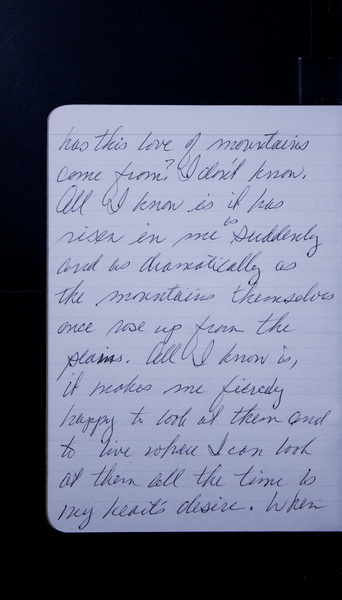 has this love of mountains
come from? I don't know.
All I know is it has
risen in me as suddenly
and as dramatically as
the mountains themselves
once rose up from the
plains. All I know is,
it makes me fiercely
happy to look at them and
to live where I can look
at them all the time is
my heart's desire. When